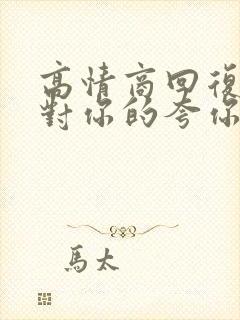 高情商回復
對你的夸你
馬太